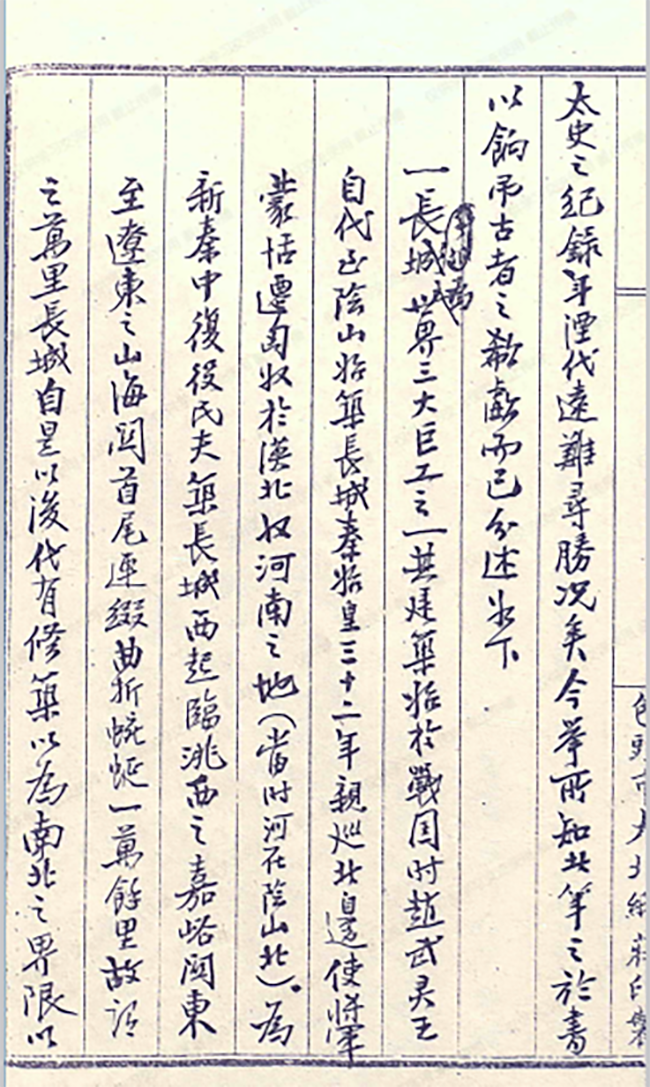 太史之紀錄年湮代遠難尋勝况矣今舉所知北筆之於書
以餉吊古者之欷歔而已分述如下
一長城為世界三大巨工之一其建築始於戰国时趙武灵王
自代並陰山始築長城秦始皇三十二年親巡北邊使將軍
蒙恬遷匈奴於漠北收河南之地(當时河在陰山北)。為
新秦中復役民夫築長城西起臨洮西之嘉峪関東
至遼東之山海関首尾連綴曲折蜿蜒一萬餘里故謂
之萬里長城自是以後代有修築以為南北之界限以